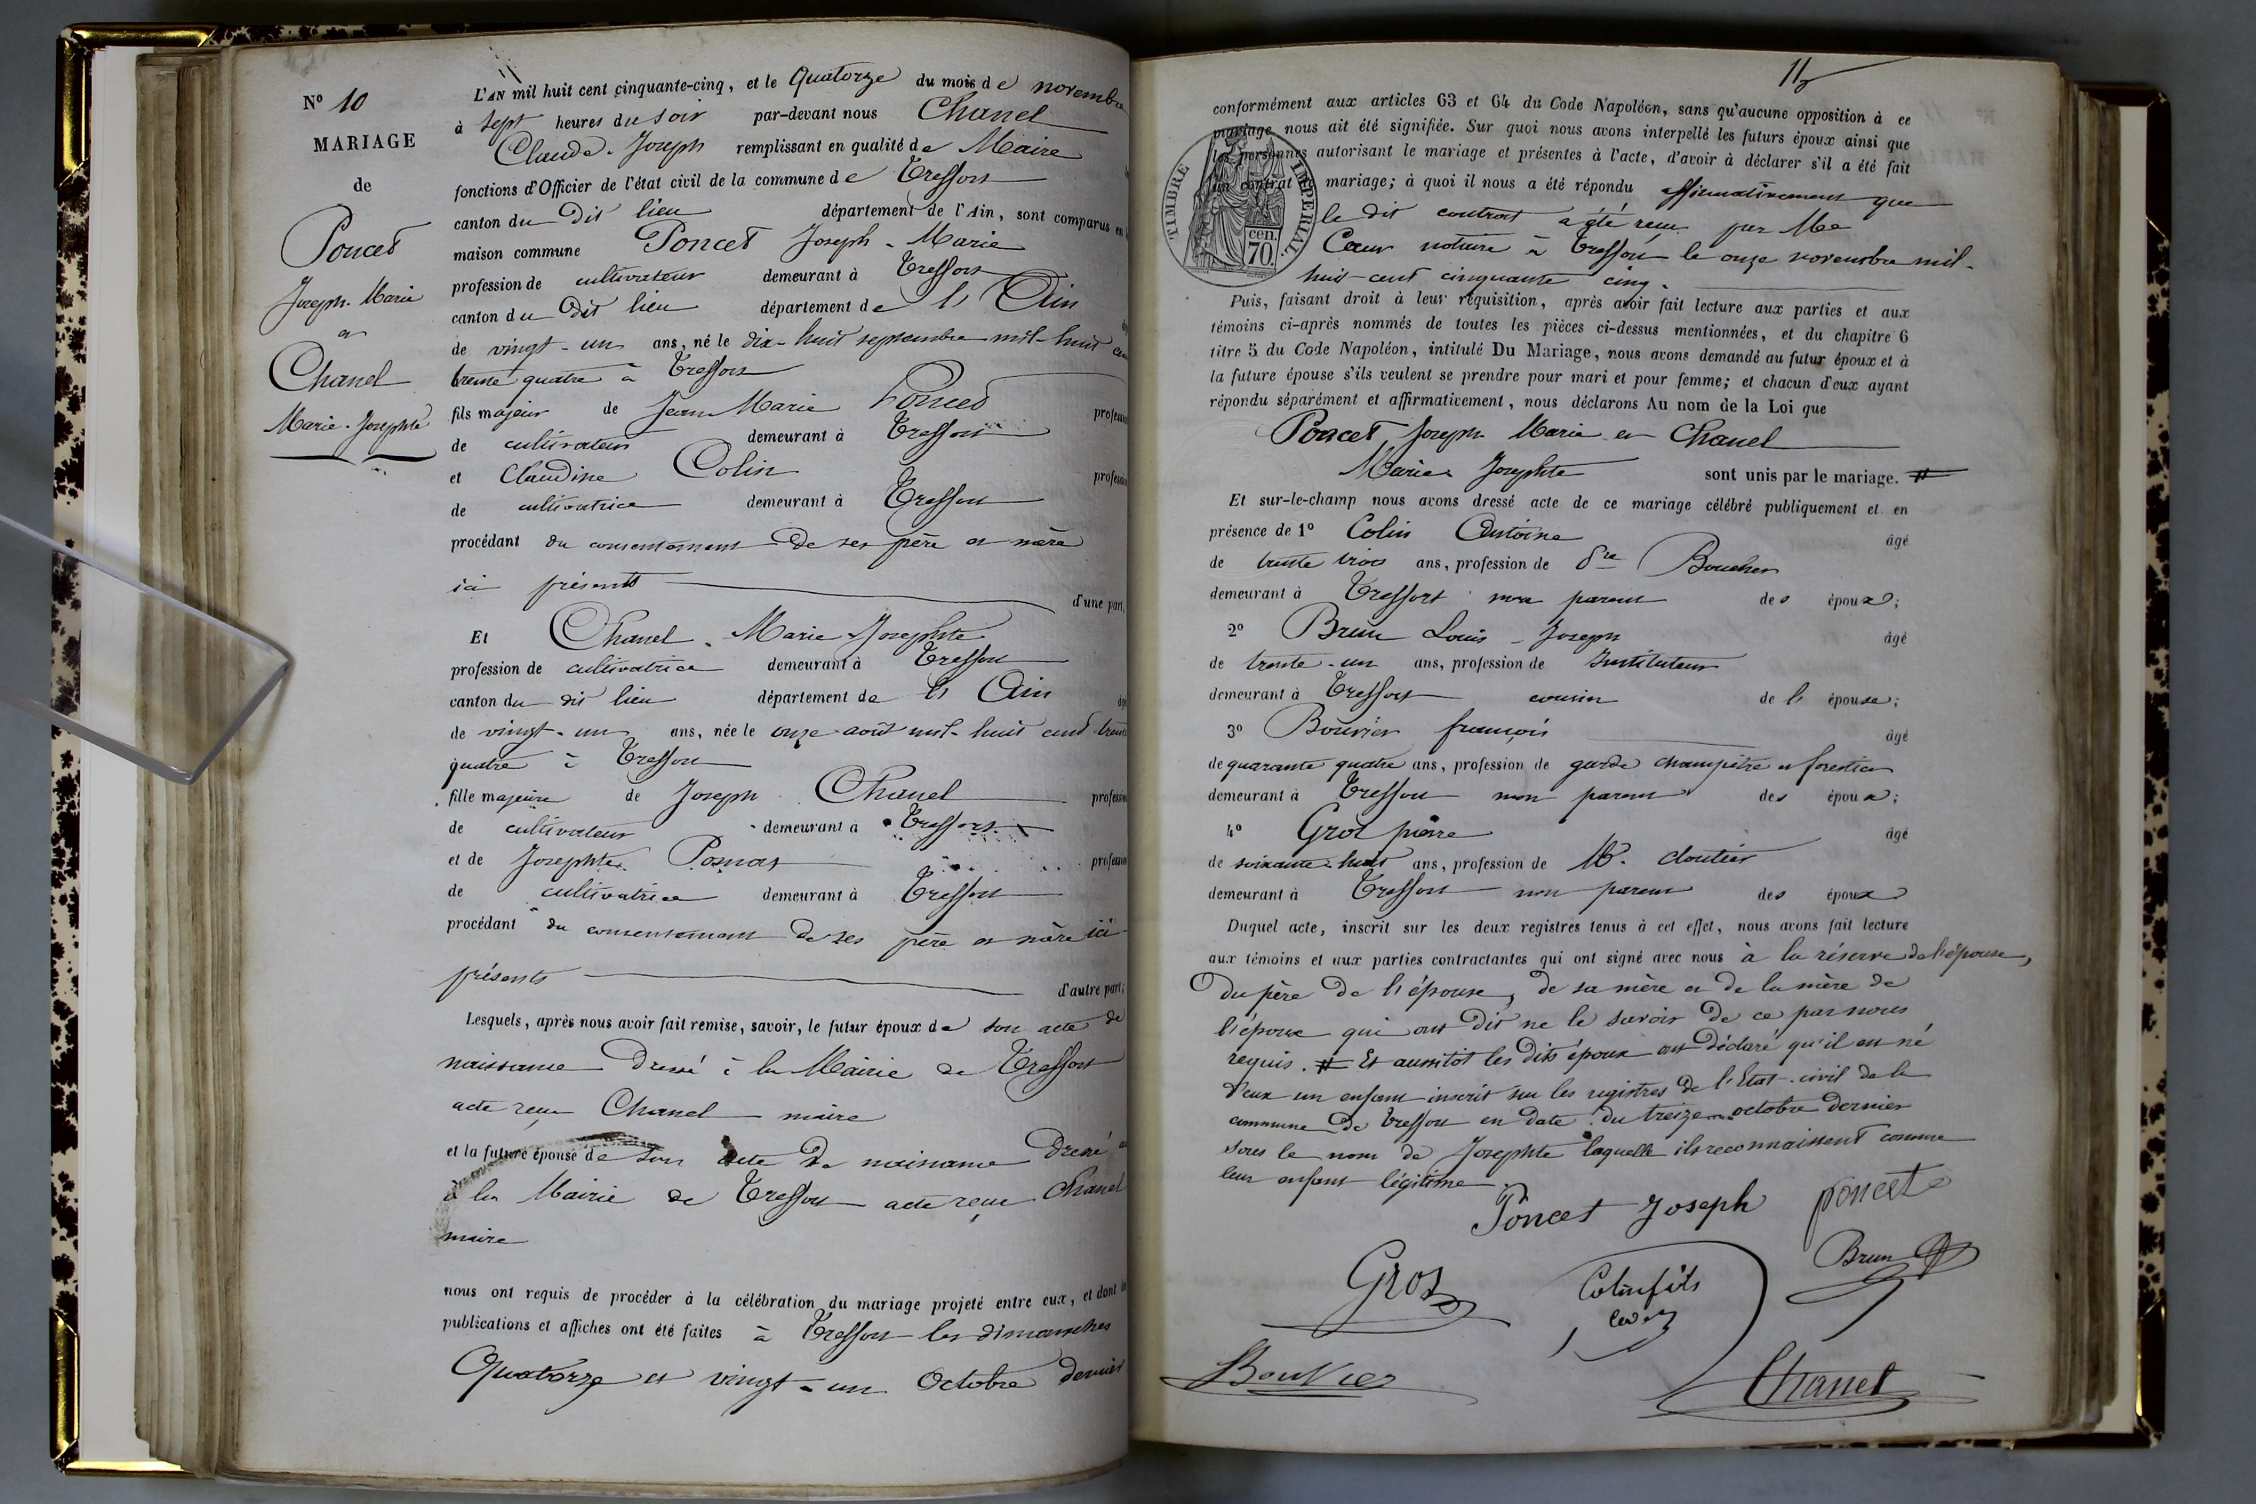 N° 10
MARIAGE
de
Poncet
Joseph-Marie
et
Chanel
Marie-Josephte
L'AN mil huit cent cinquante-cinq, et le Quatorze du mois de novembre
à sept heures du soir par-devant nous Chanel
Claude-Joseph remplissant en qualité de Maire
fonctions d'Officier de l'état civil de la commune de Treffort
canton du dit lieu département de l'Ain, sont comparus en
maison commune Poncet Joseph-Marie
profession de cultivateur demeurant à Treffort
canton du dit lieu département de l'Ain
de vingt-un ans, né le dix-huit septembre mil-huit cent
trente quatre à Treffort
fils majeur de Jean Marie Poncet profession
de cultivateur demeurant à Treffort
et Claudine Colin profession
de cultivatrice demeurant à Treffort
procédant du consentement de ses père et mère
ici présents d'une part,
Et Chanel Marie-Josephte
profession de cultivatrice demeurant à Treffort
canton du dit lieu département de l'Ain
de vingt-un ans, née le onze août mil-huit cent trente
quatre à Treffort
fille majeure de Joseph Chanel profession
de cultivateur demeurant à Treffort
et de Josephte profession
de cultivatrice demeurant à Treffort
procédant du consentement de ses père et mère ici
présents d'autre part;
Lesquels, après nous avoir fait remise, savoir, le futur époux de son acte de
naissance dressé à la Mairie de Treffort
acte reçu Chanel maire
et la future épouse de son acte de naissance dressé
à la Mairie de Treffort acte reçu Chanel
maire
nous ont requis de procéder à la célébration du mariage projeté entre eux, et dont les
publications et affiches ont été faites à Treffort les dimanches
Quatorze et vingt-un Octobre dernier
11
conformément aux articles 63 et 64 du Code Napoléon, sans qu'aucune opposition à ce
mariage nous ait été signifiée. Sur quoi nous avons interpellé les futurs époux ainsi que
les personnes autorisant le mariage et présentes à l'acte, d'avoir à déclarer s'il a été fait
un contrat de mariage; à quoi il nous a été répondu affirmativement que
le dit contrat a été reçu par Me
Cœur notaire à Treffort le onze novembre mil-
huit-cent cinquante cinq.
TIMBRE IMPERIAL.
70. cen.
Puis, faisant droit à leur réquisition, après avoir fait lecture aux parties et aux
témoins ci-après nommés de toutes les pièces ci-dessus mentionnées, et du chapitre 6
titre 5 du Code Napoléon, intitulé Du Mariage, nous avons demandé au futur époux et à
la future épouse s'ils veulent se prendre pour mari et pour femme; et chacun d'eux ayant
répondu séparément et affirmativement, nous déclarons Au nom de la Loi que
Poncet Joseph Marie et Chanel
Marie Josephte sont unis par le mariage. #
Et sur-le-champ nous avons dressé acte de ce mariage célébré publiquement et en
présence de 1° Colin Antoine âgé
de trente trois ans, profession de Boucher
demeurant à Treffort non parent des époux;
2° Brun Louis-Joseph âgé
de trente-un ans, profession de Instituteur
demeurant à Treffort cousin de l'épouse;
3° Bouvier françois âgé
de quarante quatre ans, profession de garde champêtre et forestier
demeurant à Treffort non parent des époux;
4° Gros pierre âgé
de soixante-huit ans, profession de Md. cloutier
demeurant à Treffort non parent des époux
Duquel acte, inscrit sur les deux registres tenus à cet effet, nous avons fait lecture
aux témoins et aux parties contractantes qui ont signé avec nous à la réserve de l'épouse,
du père de l'épouse, de sa mère et de la mère de
l'époux qui ont dit ne le savoir de ce par nous
requis. # Et aussitôt les dits époux ont déclaré qu'il est né
d'eux un enfant inscrit sur les registres de l'Etat-civil de la
commune de Treffort en date du treize octobre dernier
sous le nom de Josephte laquelle ils reconnaissent comme
leur enfant légitime.
Poncet Joseph poncet
Gros Colin fils Brun
Bouvier Chanel